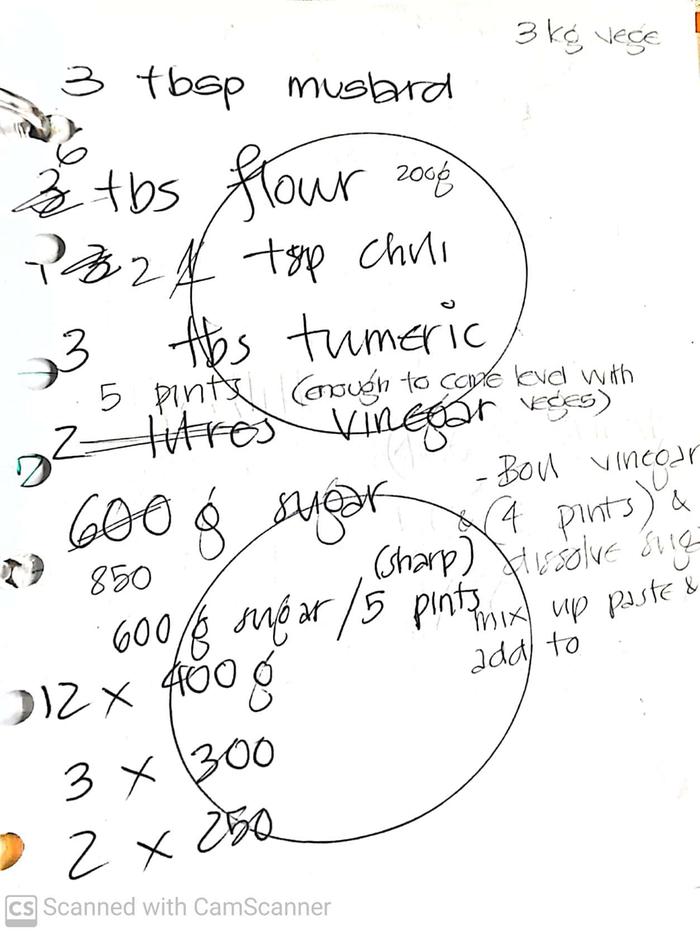 3 kg vege
3 tbsp mustard
6
3 tbs flour 200g
1 3 2 1 tsp chilli
3 tbs tumeric
5 pints (enough to come level with
2 litres vinegar veges)
600 g sugar
850
- Boil vinegar
& (4 pints) &
dissolve sug
mix up paste &
add to
(sharp)
600 g sugar / 5 pints
12 x 400 g
3 x 300
2 x 250
CS Scanned with CamScanner